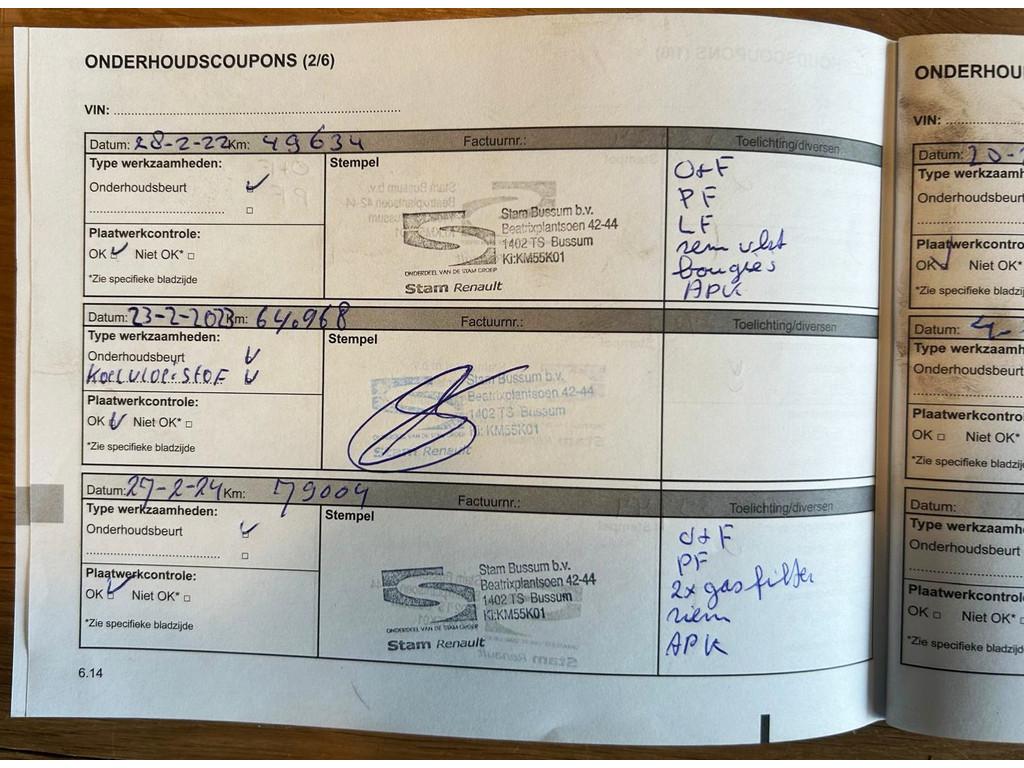 ONDERHOUDSCOUPONS (2/6)
VIN:
Datum: 28-2-22 Km: 49634 Factuurnr.: Toelichting/diversen
Type werkzaamheden:
Onderhoudsbeurt
Plaatwerkcontrole:
OK Niet OK*
*Zie specifieke bladzijde
Stempel
Stam Bussum b.v.
Beatrixplantsoen 42-44
1402 TS Bussum
Ki:KM55K01
ONDERDEEL VAN DE STAM GROEP
Stam Renault
O+F
PF
LF
rem vlst
bougies
APK
Datum: 23-2-2023 Km: 64.968 Factuurnr.: Toelichting/diversen
Type werkzaamheden:
Onderhoudsbeurt
Koelvloeistof
Plaatwerkcontrole:
OK Niet OK*
*Zie specifieke bladzijde
Stempel
Stam Bussum b.v.
Beatrixplantsoen 42-44
1402 TS Bussum
Ki:KM55K01
ONDERDEEL VAN DE STAM GROEP
Stam Renault
Datum: 27-2-24 Km: 79004 Factuurnr.: Toelichting/diversen
Type werkzaamheden:
Onderhoudsbeurt
Plaatwerkcontrole:
OK Niet OK*
*Zie specifieke bladzijde
Stempel
Stam Bussum b.v.
Beatrixplantsoen 42-44
1402 TS Bussum
Ki:KM55K01
ONDERDEEL VAN DE STAM GROEP
Stam Renault
O+F
PF
2x gasfilter
riem
APK
6.14
ONDERHOU
VIN:
Datum: 20-
Type werkzaamh
Onderhoudsbeurt
Plaatwerkcontro
OK Niet OK*
*Zie specifieke bladzij
Datum: 4-
Type werkzaamh
Onderhoudsbeurt
Plaatwerkcontro
OK Niet OK*
*Zie specifieke bladzij
Datum:
Type werkzaamh
Onderhoudsbeurt
Plaatwerkcontrol
OK Niet OK*
*Zie specifieke bladzijd